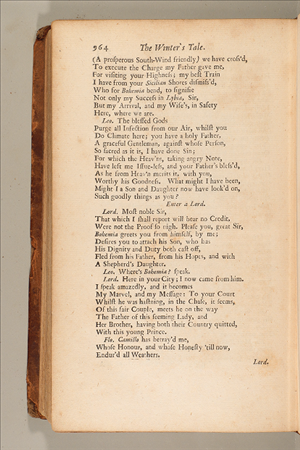 964 The Winter's Tale.
(A prosperous South-Wind friendly) we have cross'd,
To execute the Charge my Father gave me,
For visiting your Highness; my best Train
I have from your Sicilian Shores dismiss'd,
Who for Bohemia bend, to signifie
Not only my Success in Lybia, Sir,
But my Arrival, and my Wife's, in Safety
Here, where we are.
Leo. The blessed Gods
Purge all Infection from our Air, whilst you
Do Climate here; you have a holy Father,
A graceful Gentleman, against whose Person,
So sacred as it is, I have done Sin;
For which the Heav'ns, taking angry Note,
Have left me Issue-less, and your Father's bless'd,
As he from Heav'n merits it, with you,
Worthy his Goodness. What might I have been,
Might I a Son and Daughter now have look'd on,
Such goodly things as you?
Enter a Lord.
Lord. Most noble Sir,
That which I shall report will bear no Credit,
Were not the Proof so nigh. Please you, great Sir,
Bohemia greets you from himself, by me;
Desires you to attach his Son, who has
His Dignity and Duty both cast off,
Fled from his Father, from his Hopes, and with
A Shepherd's Daughter.
Leo. Where's Bohemia? speak.
Lord. Here in your City; I now came from him.
I speak amazedly, and it becomes
My Marvel, and my Message: To your Court
Whilst he was hastning, in the Chase, it seems,
Of this fair Couple, meets he on the way
The Father of this seeming Lady, and
Her Brother, having both their Country quitted,
With this young Prince.
Flo. Camillo has betray'd me,
Whose Honour, and whose Honesty 'till now,
Endur'd all Weathers.
Lord.